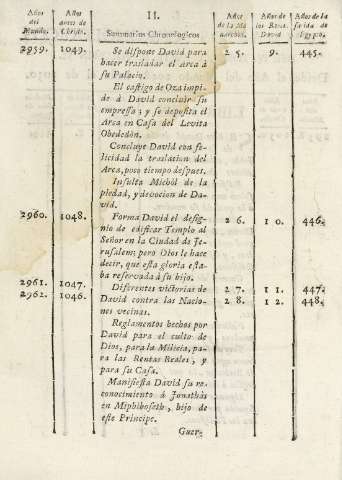 Años del Mundo.
Años antes de Christo.
II.
Summarios Chronologicos
Años de la Monarchia.
Años de los Reyes. David
Años de la salida de Egypto.
2959. 1049. Se dispone David para 25. 9. 445.
hacer trasladar el Arca à
su Palacio.
El castigo de Oza impi-
de à David concluir su
empressa; y se deposita el
Arca en Casa del Levita
Obededón.
Concluye David con fe-
licidad la traslacion del
Arca, poco tiempo despues.
Insulta Michòl de la
piedad, y devocion de Da-
vid.
2960. 1048. Forma David el desig- 26. 10. 446.
nio de edificar Templo al
Señor en la Ciudad de Je-
rusalem; pero Dios le hace
decir, que esta gloria esta-
ba reservada à su hijo.
2961. 1047. Diferentes victorias de 27. 11. 447.
2962. 1046. David contra las Nacio- 28. 12. 448.
nes vecinas.
Reglamentos hechos por
David para el culto de
Dios, para la Milicia, pa-
ra las Rentas Reales, y
para su Casa.
Manifiesta David su re-
conocimiento à Jonathàs
en Miphiboseth, hijo de
este Principe.
Guer-